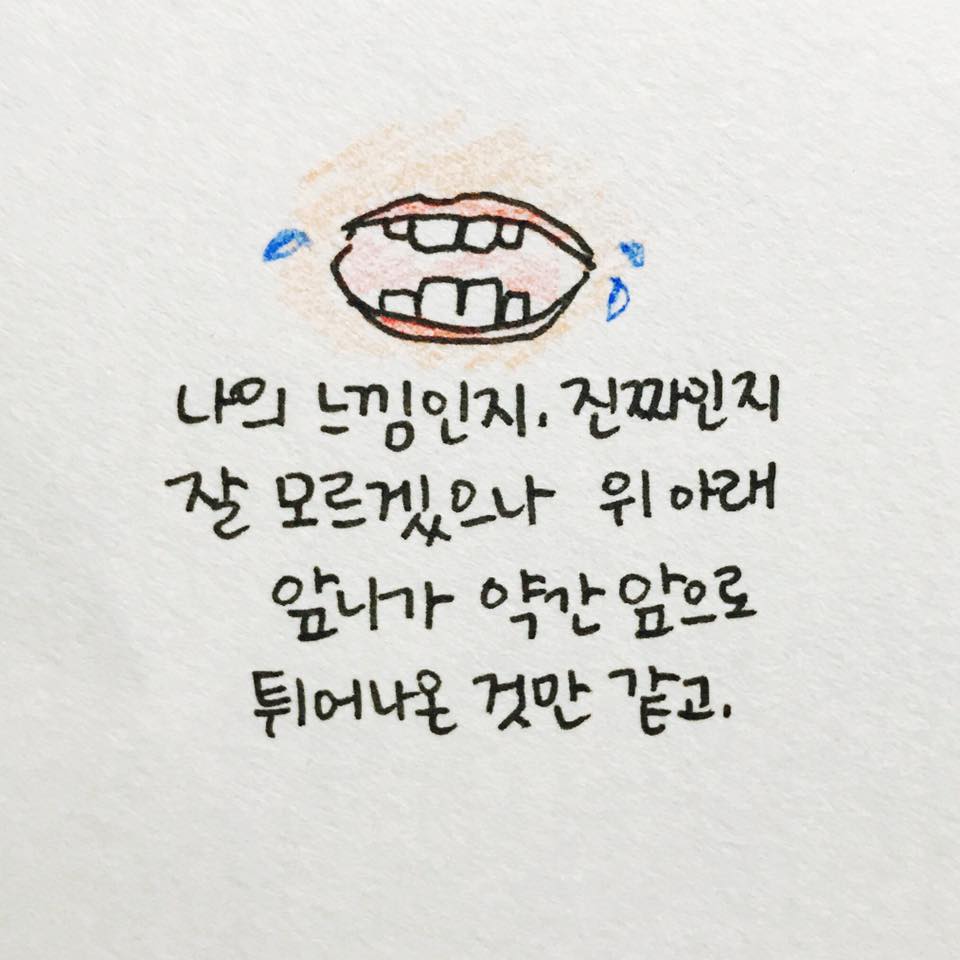 나의 느낌인지. 진짜인지
잘 모르겠으나 위 아래
앞니가 약간 앞으로
튀어나온 것만 같고.